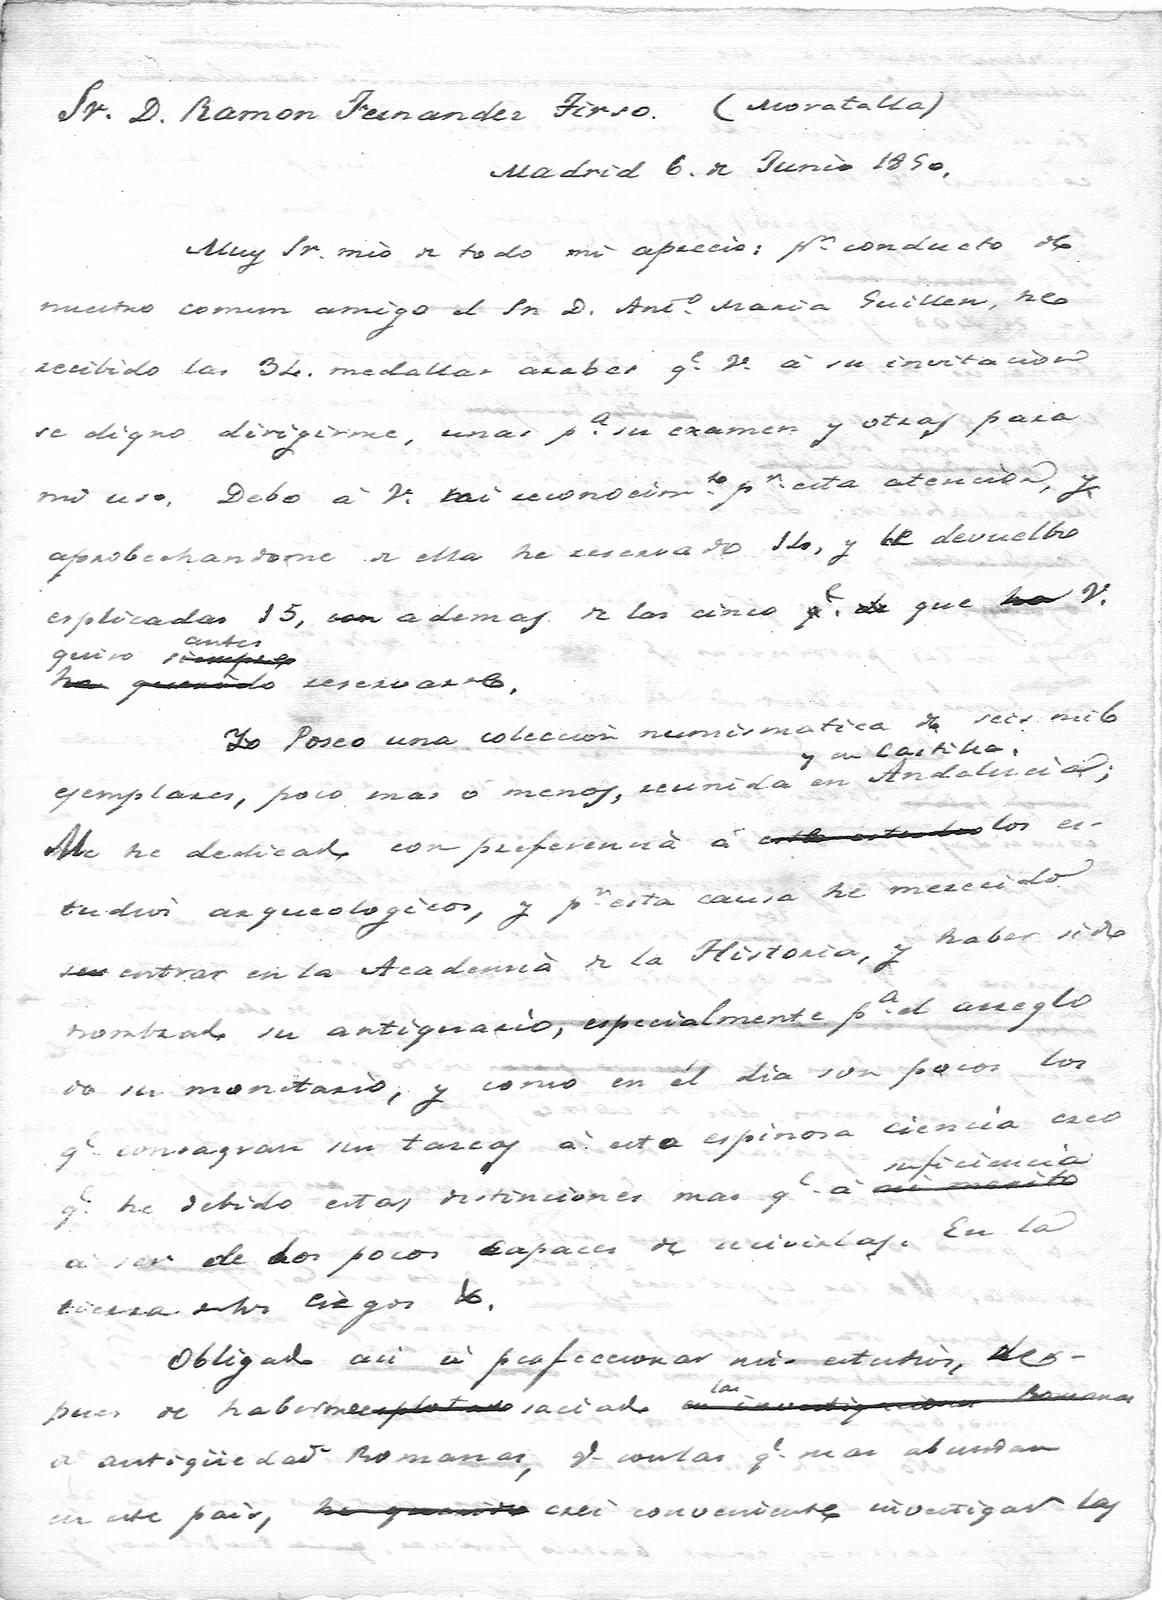 Sr. D. Ramon Fernandez Tirso. (Moratalla)
Madrid 6. de Junio 1850.
Muy Sr. mio de todo mi aprecio: pr. conducto de
nuestro comun amigo el Sr. D. Anto. Maria Guillen, he
recibido las 34. medallas arabes qe. V. à su invitacion
se digno dirigirme, unas pa. su examen y otras para
mi uso. Debo à V. mi reconocimto. pr. esta atencion, y
aprobechandome de ella he reservado 14, y le devuelbo
esplicadas 15, con ademas de las cinco qe. de que ha V.
quiso siempre antes
ha querido reservarse.
Yo Poseo una coleccion numismatica de seis mil
y en Castilla.
ejemplares, poco mas ò menos, reunida en Andalucia;
Me he dedicado con preferencia à este estudio los es-
tudios arqueologicos, y pr. esta causa he merecido
ser entrar en la Academia de la Historia, y haber sido
nombrado su antiquario, especialmente pa. el arreglo
de su monetario, y como en el dia son pocos los
qe. consagran sus tareas à esta espinosa ciencia creo
suficiencia
qe. he debido estas distinciones mas qe. à mi merito
à ser de los pocos capaces de
En la
tierra de los ciegos &.
Obligado asi à perfeccionar mis estudios, des-
pues de haberme esplotado saciado en las investigaciones Romanas
de antigüedad Romanas, con las qe. mas abundan
en este pais, he querido crei conveniente investigar las